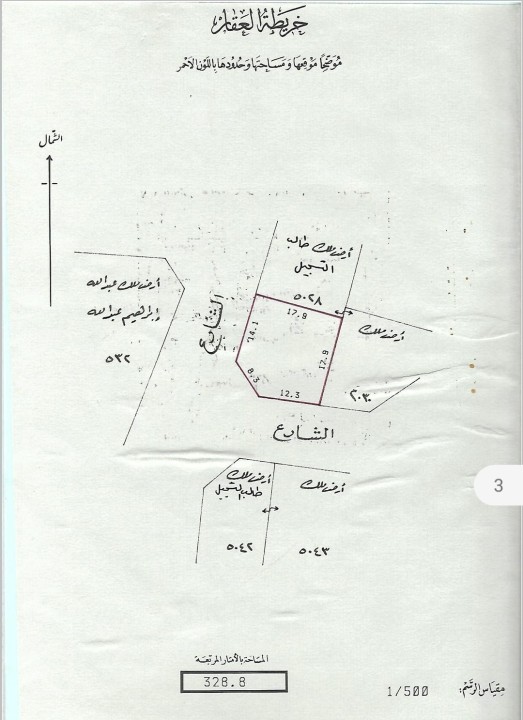 خريطة العقار
مُوَضّحًا مَوقعها وَمَسَاحتها وَحُدُودها باللّون الأحمر
الشمال
أرض ملك طالب
التسجيل
٥٠٢٨
أرض ملك عبدالله
إبراهيم عبدالله
٥٣٢
الشارع
17.8
14.1
8.3
12.3
17.8
أرض ملك
٢٠٣٠
الشارع
أرض ملك
طالب التسجيل
أرض ملك
٥٠٤٢
٥٠٤٣
3
المسَاحَة بالأمتار المربّعَة
328.8
مقياس الرسْم:
1/500